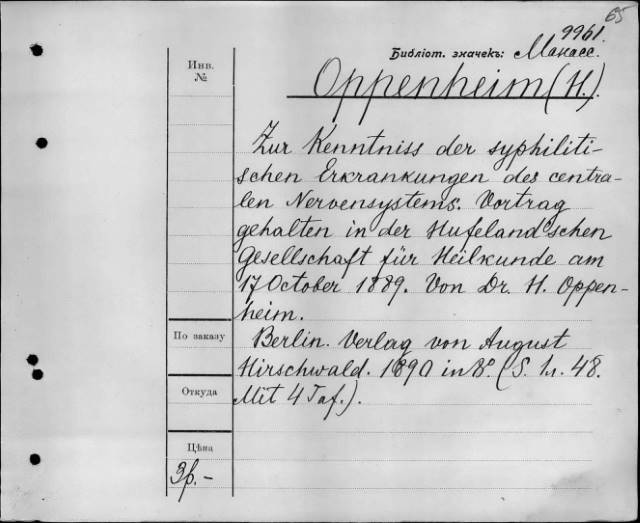 65
9961.
Библіот. значекъ: Макасс.
Инв.
№
Oppenheim (H.).
Zur Kenntniss der syphiliti-
schen Erkrankungen des centra-
len Nervensystems. Vortrag
gehalten in der Hufeland'schen
Gesellschaft für Heilkunde am
17 October 1889. Von Dr. H. Oppen-
heim.
По заказу
Berlin. Verlag von August
Hirschwald. 1890 in 8º. (S. 48.
Откуда
Mit 4 Taf.).
Цѣна
3р.-